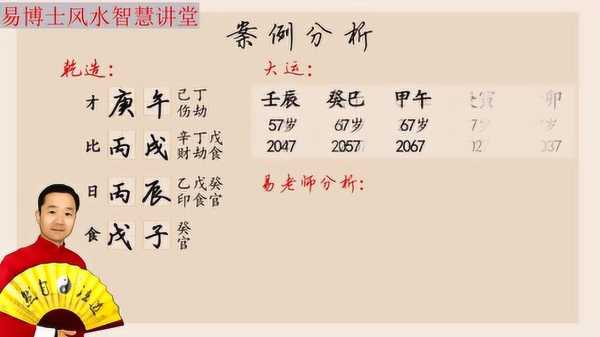 易博士风水智慧讲堂
案例分析
乾造：
才 庚 午 己丁
伤劫
比 丙 戌 辛丁戊
财劫食
日 丙 辰 乙戊癸
印食官
食 戊 子 癸
官
大运：
壬辰 癸巳 甲午 寅 卯
57岁 67岁 67岁 7岁 岁
2047 2057 2067 037
易老师分析：
道法自然